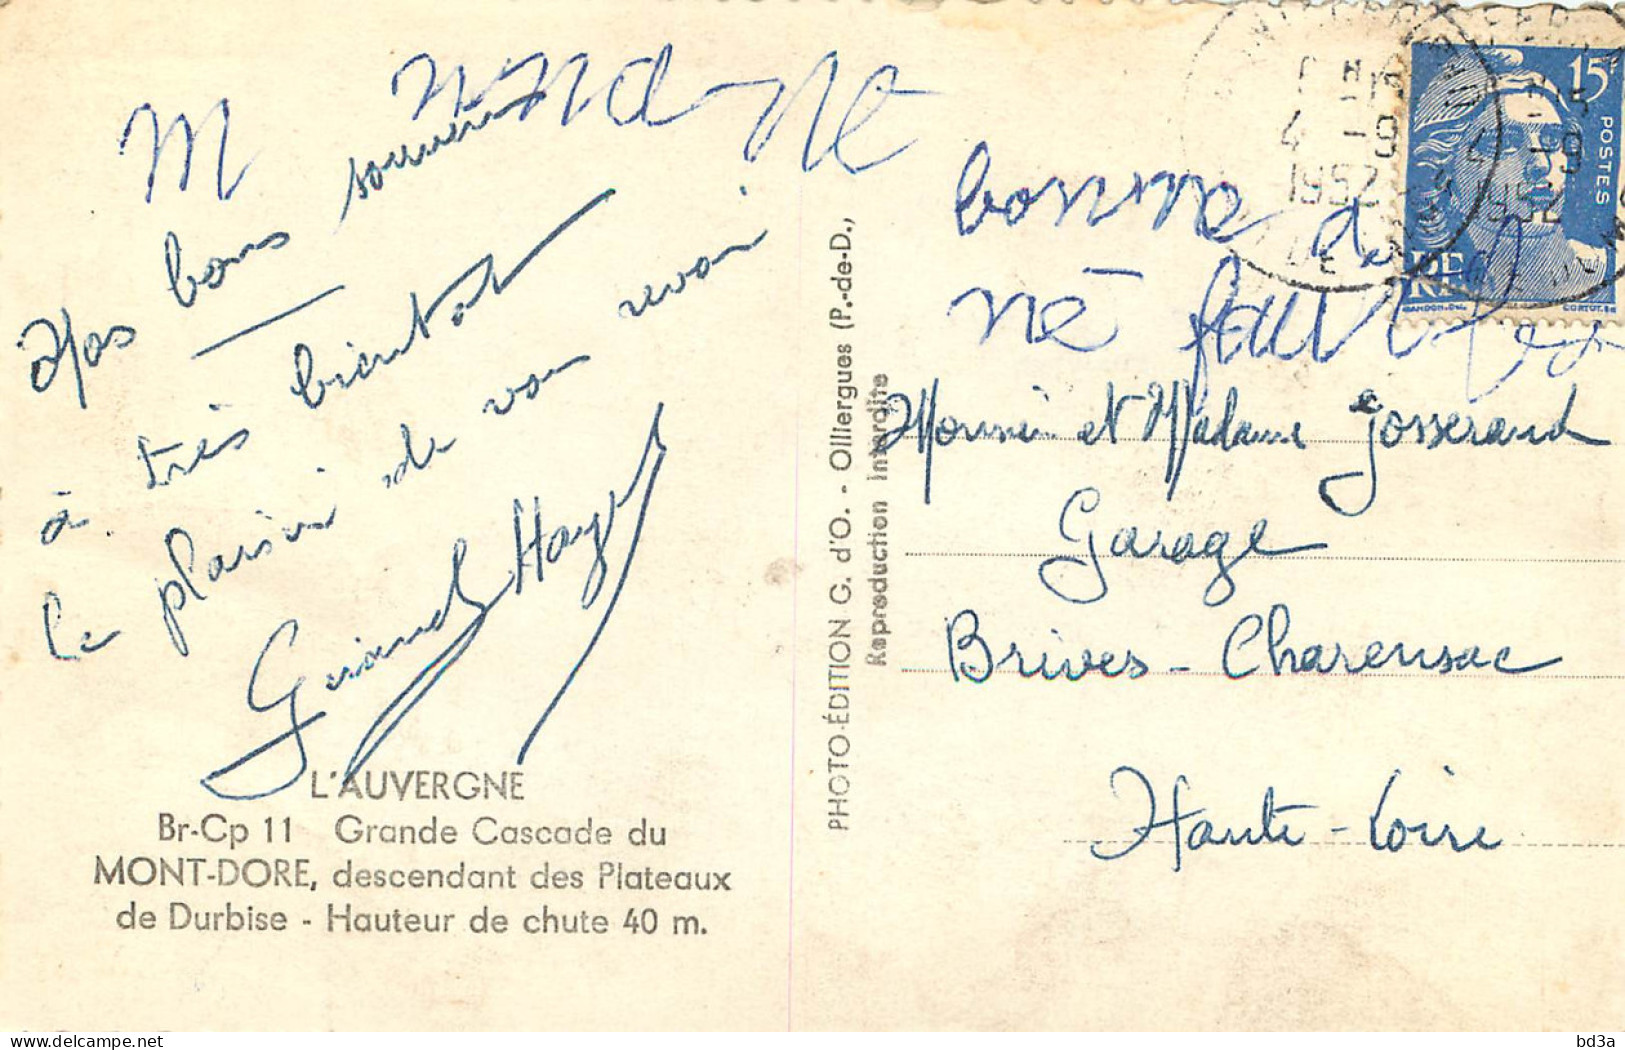 Nos bons souvenirs
à très bientot
le plaisir de vous revoir
L'AUVERGNE
Br-Cp 11 Grande Cascade du
MONT-DORE, descendant des Plateaux
de Durbise - Hauteur de chute 40 m.
PHOTO-ÉDITION G. d'O. - Olliergues (P.-de-D.),
Reproduction Interdite
4 -9
1952
4 -9
1952
15F
POSTES
RF
bonne
Monsieur et Madame Josserand
Garage
Brives-Charensac
Haute-Loire
delcampe.net
bd3a